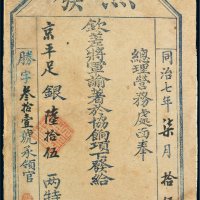 總理營務處面奉
欽差將軍諭着於協餉項下發給
京平足銀陸拾伍兩特
勝字叁拾壹號承領官
同治七年柒月拾